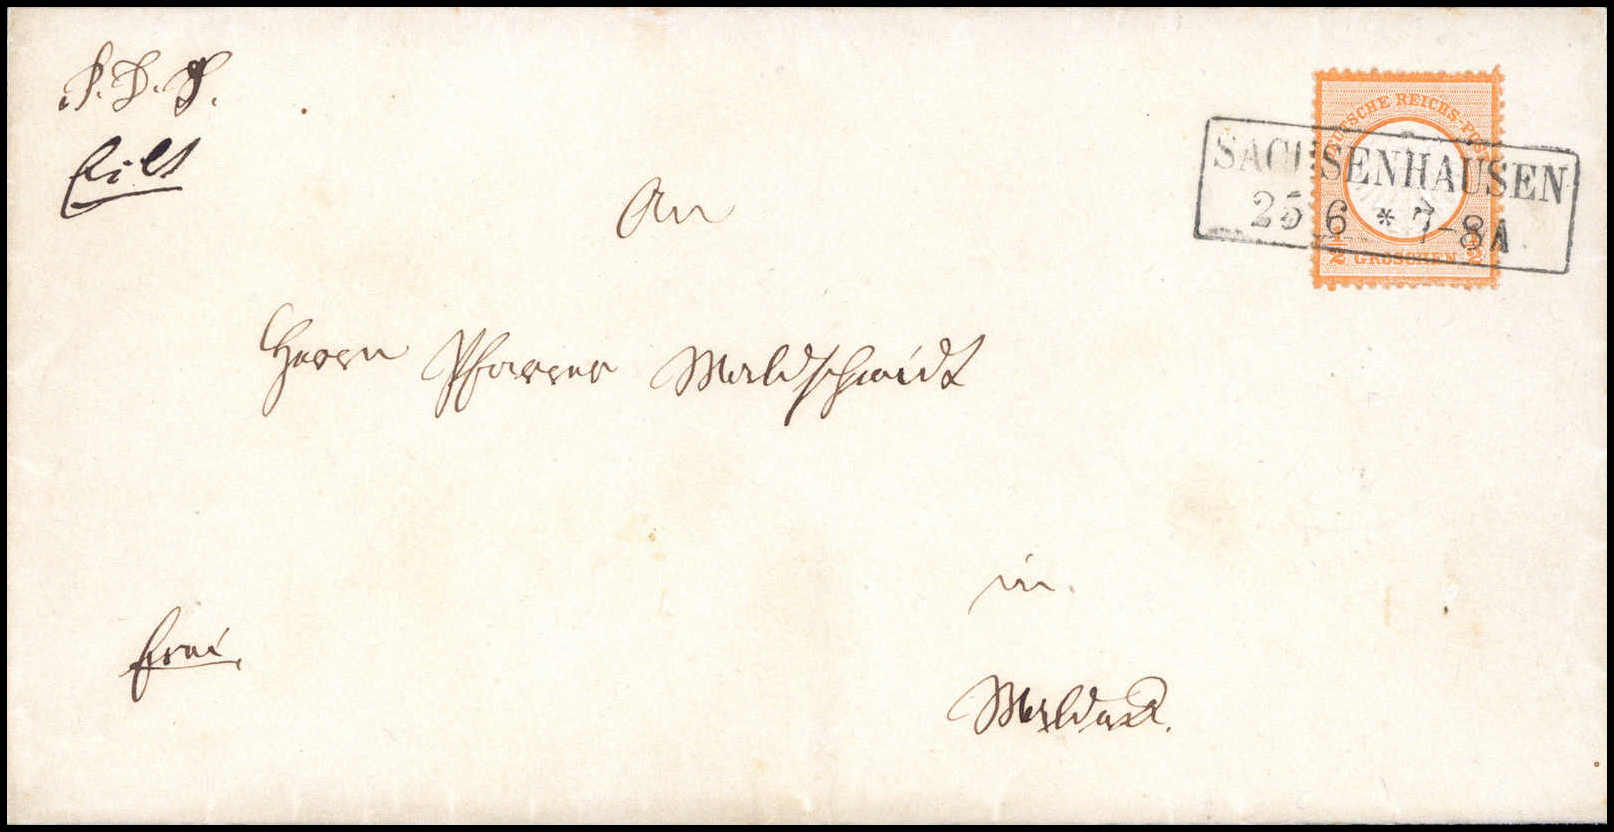 P. D. S.
Eilt
DEUTSCHE REICHS-POST
SACHSENHAUSEN
25 6 * 7-8A
1/2 GROSCHEN 1/2
An
Herrn Pfarrer Waldschmidt
in
frei